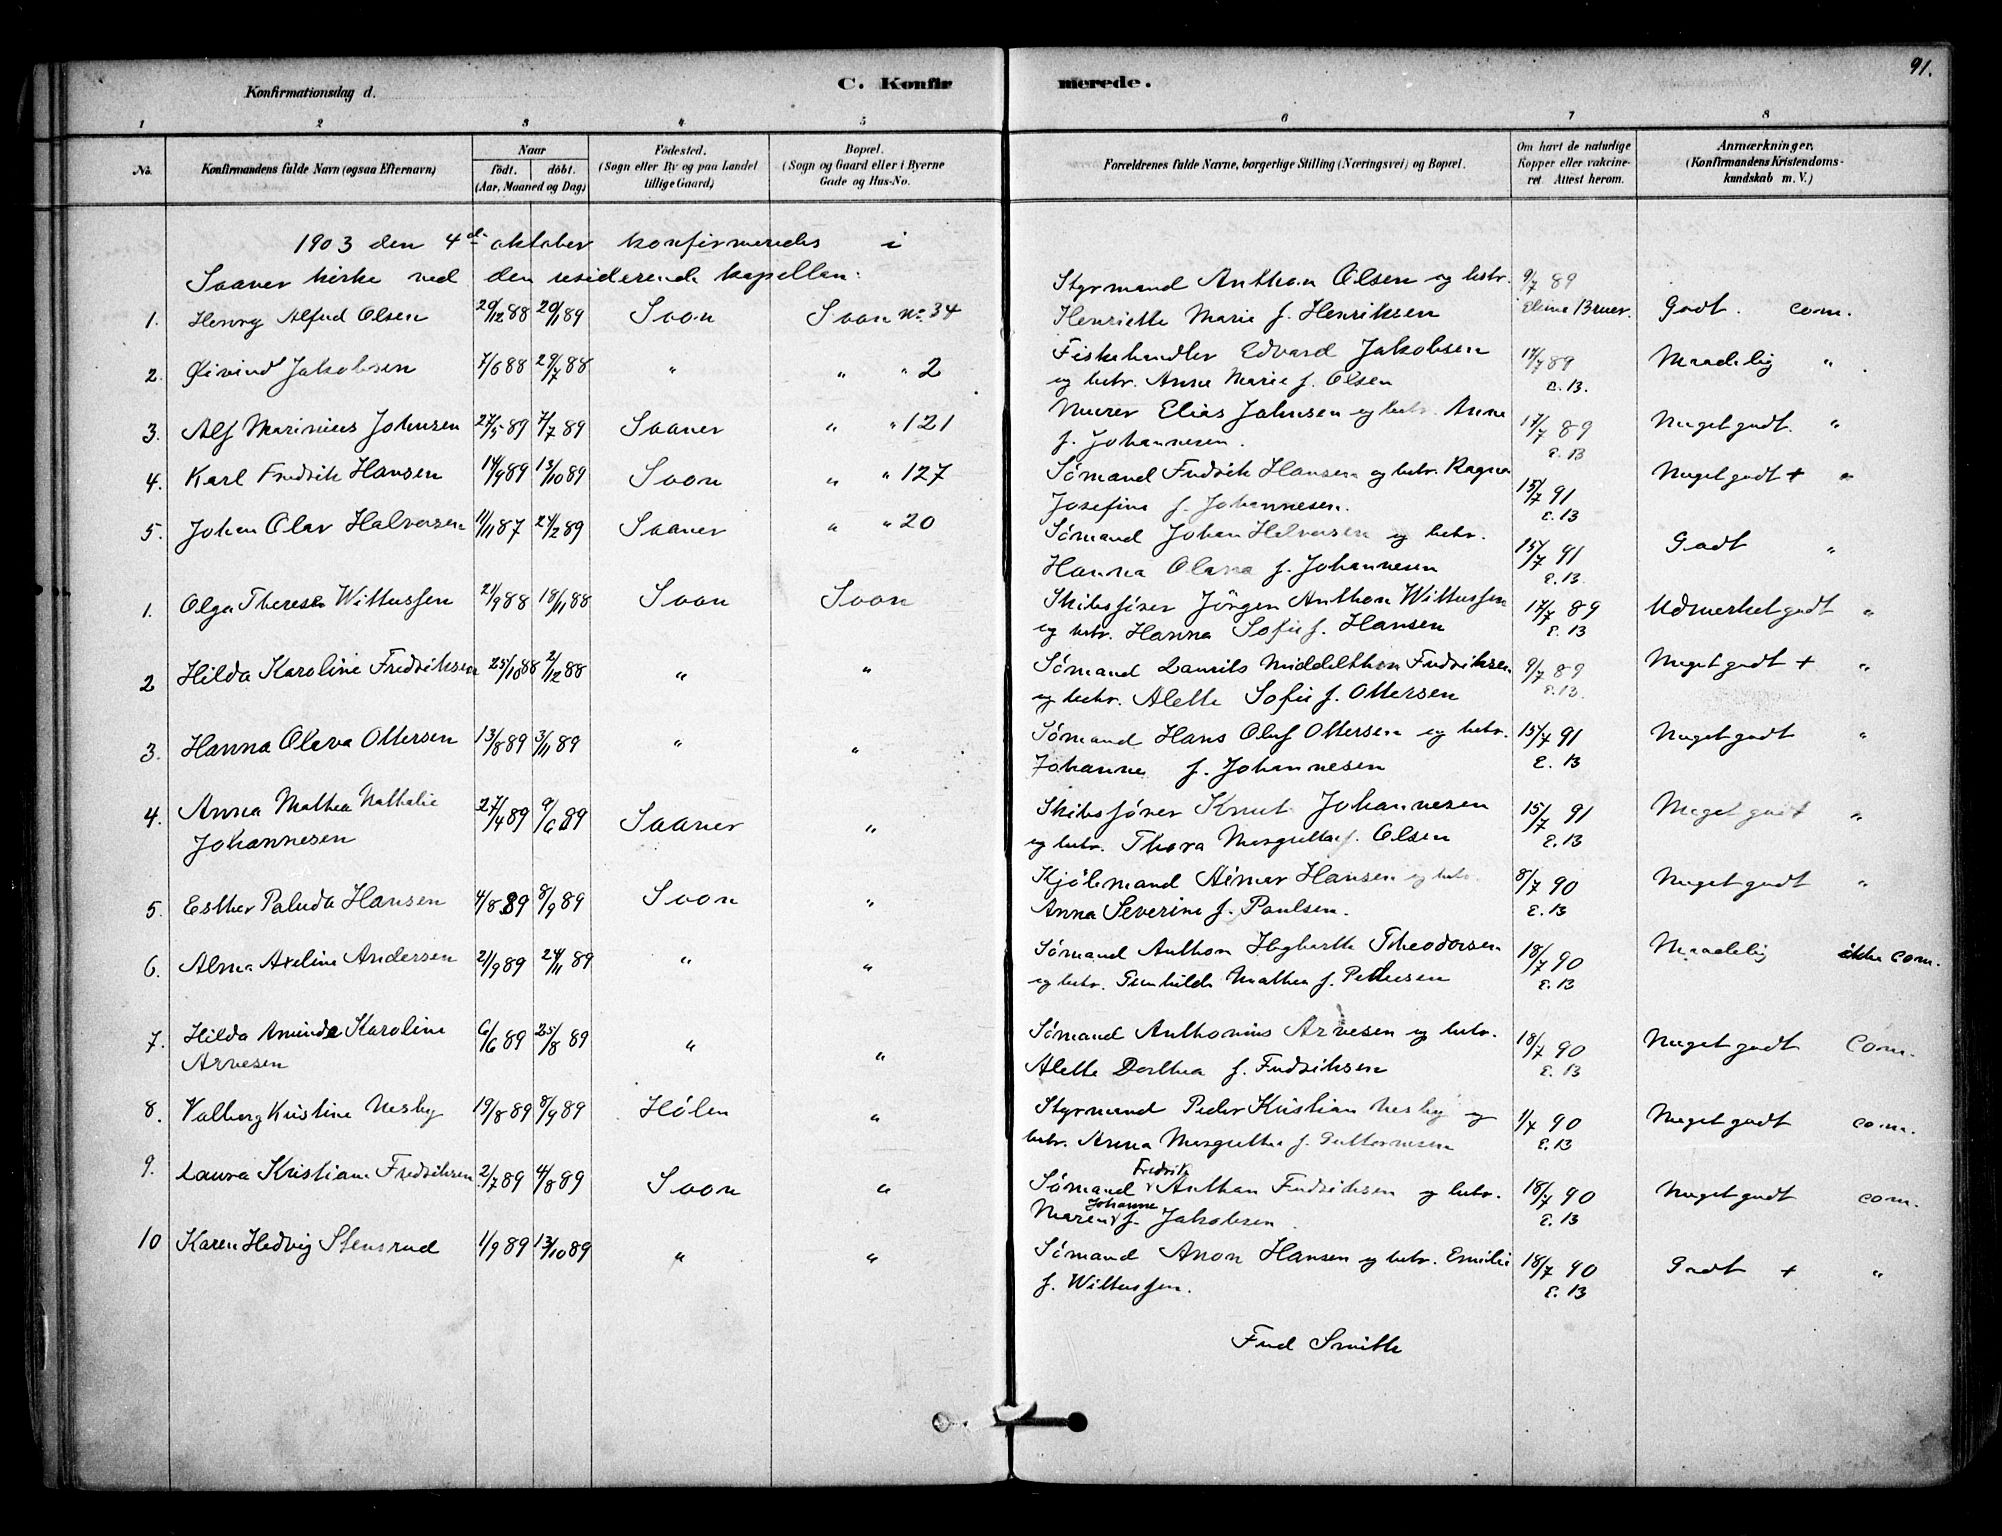 91.
Konfirmationsdag d.
C. Konfir
merede.
1 2 3 4 5 6 7 8
No.
Konfirmandens fulde Navn (ogsaa Efternavn)
Naar
født. døbt.
(Aar, Maaned og Dag)
Fødested.
(Sogn eller By og paa Landet
tillige Gaard)
Bopæl.
(Sogn og Gaard eller i Byerne
Gade og Hus-No.
Forældrenes fulde Navne, borgerlige Stilling (Næringsvei) og Bopæl.
Om havt de naturlige
Kopper eller vakcine-
ret. Attest herom.
Anmærkninger.
(Konfirmandens Kristendoms-
kundskab m. V.)
1903 den 4de oktober konfirmeredes i
Saaner kirke ved den residerende kapellan:
1. Henry Alfred Olsen 29/12 88 20/1 89 Soon Soon No. 34
Styrmand Anthon Olsen og hstr.
Henriette Marie f. Henriksen
9/7 89
Godt. com.
2. Øivind Jakobsen 7/6 88 29/7 88 " " " 2
Fiskehandler Edvard Jakobsen
og hstr. Anne Marie f. Olsen
17/7 89
E. B.
Maadelig "
3. Alf Marinius Johnsen 27/5 89 7/7 89 Saaner " " 121
Murer Elias Johnsen og hstr. Anna
f. Johannesen.
17/7 89
E. B
Meget godt. "
4. Karl Fredrik Hansen 14/9 89 13/10 89 Soon " " 127
Sømand Fredrik Hansen og hstr. Ragna
Josefine f. Johannesen.
15/7 91
E. B
Meget godt + "
5. Johan Olav Halvorsen 11/11 87 24/2 89 Saaner " " 20
Sømand Johan Halvorsen og hstr.
Hanna Olava f. Johannesen
15/7 91
E. B.
Godt "
1. Olga Theresia Wittussen 21/9 88 18/11 88 Soon Soon
Skibsfører Jörgen Anthon Wittussen
og hstr. Hanna Sofie f. Hansen
17/7 89
E. B
Udmerket godt "
2 Hilda Karoline Fredriksen 25/10 88 2/12 88 " "
Sømand Laurits Middelthon Fredriksen
og hstr. Alette Sofie f. Ottersen
9/7 89
E. B.
Meget godt + "
3. Hanna Olava Ottersen 13/8 89 3/11 89 " "
Sømand Hans Oluf Ottersen og hstr.
Johanne f. Johannesen
15/7 91
E. B
Meget godt "
4. Anna Mathea Nathalie
Johannesen 27/4 89 9/6 89 Saaner "
Skibsfører Knut Johannesen
og hstr. Thora Margretha f. Olsen
15/7 91
E. B
Meget godt "
5. Esther Paluda Hansen 4/8 89 8/9 89 Soon "
Kjölemand Aimar Hansen og hstr.
Anna Severine f. Paulsen.
8/7 90
E. B
Meget godt "
6. Alma Axeline Andersen 21/9 89 24/11 89 " "
Sømand Anthon Theodorsen
og hstr. Gunhilde Mathea f. Pettersen
18/7 90
E. B
Maadelig ikke com.
7. Hilda Aminda Karoline
Arvesen 6/6 89 25/8 89 " "
Sømand Anthonius Arvesen og hstr.
Alette Dorthea f. Fredriksen
18/7 90
E. B
Meget godt Com.
8. Valborg Kristine Nesby 19/8 89 8/9 89 Hølen "
Styrmand Peder Kristian Nesby og
hstr. Anna Margrethe f. Guttormsen
1/7 90
E. B
Meget godt com.
9. Laura Kristiane Fredriksen 2/7 89 4/8 89 Soon "
Fredrik
Sømand Anthon Fredriksen og hstr.
Johanne
Maren f. Jakobsen.
18/7 90
E. B
Meget godt com.
10 Karen Hedvig Stensrud 1/9 89 13/10 89 " "
Sømand Anon Hansen og hstr. Emilie
f. Wittussen.
18/7 90
E. B
Godt + "
Fred Smith